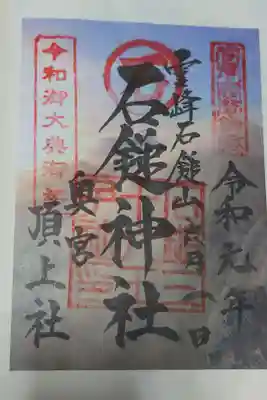 令和元年
霊峰石鎚山
六月一日
石鎚神社
奥宮
頂上社
令和御大典